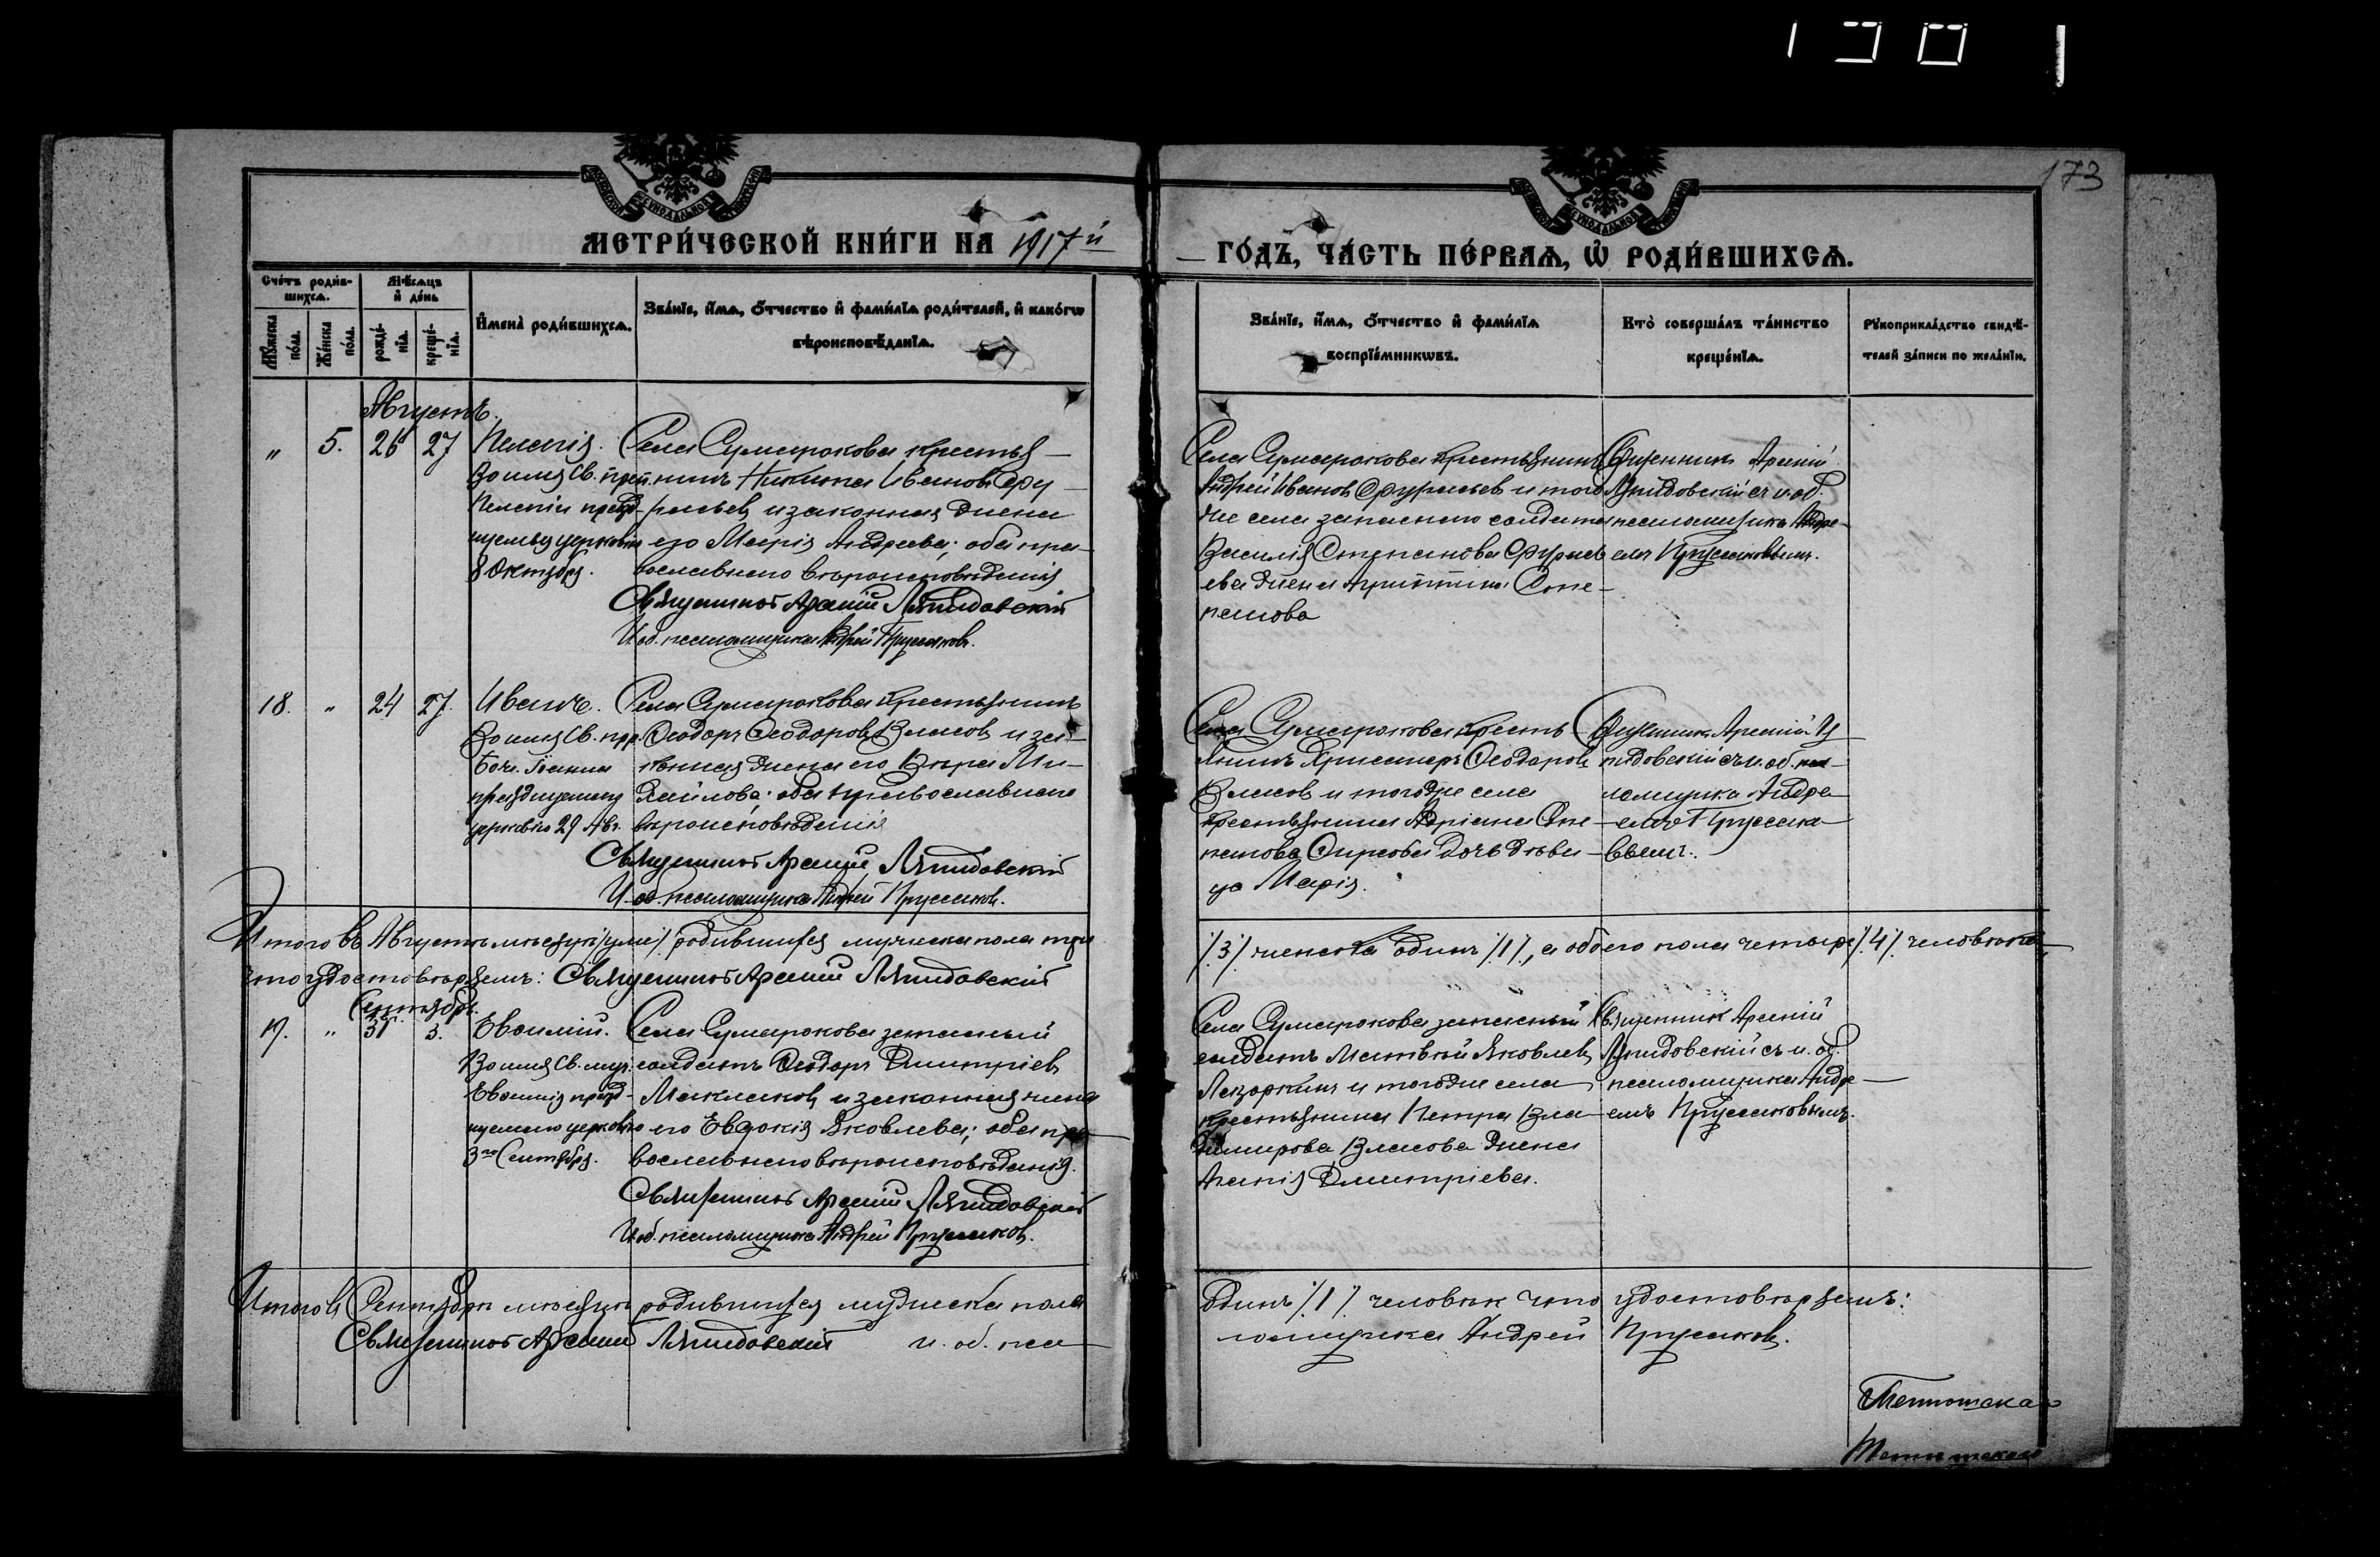 1901
173
МЕТРИ́ЧЕСКОЙ КНИ́ГИ НА 1917й
ГО́ДЪ, ЧА́СТЬ ПЕ́РВАѦ, Ѡ РОДИ́ВШИХСѦ.
Сче́тъ роди́в-
шихсѧ.
Мꙋ́жеска по́ла.
Же́нска по́ла.
Мѣ́сѧцъ
и́ де́нь
рожде́-
нїѧ.
креще́-
нїѧ.
И҆мена̀ роди́вшихсѧ.
Зва́нїе, и҆́мѧ, ѻ҆́тчество и҆ фами́лїѧ роди́телей, и҆ како́гѡ
вѣроисповѣ́данїѧ.
Зва́нїе, и҆́мѧ, ѻ҆́тчество и҆ фами́лїѧ
воспрїе́мникѡвъ.
Кто̀ соверша́лъ та́инство
креще́нїѧ.
Рꙋкоприкла́дство свидѣ́-
телей за́писи по жела́нїю.
Августъ.
" 5. 26 27 Пелагія.
Во имя Св. преп.
Пелагіи празд-
нуемыя церковію
8 Октября.
Села Сумарокова крестья-
нинъ Никита Ивановъ Фур
расьевъ и законная жена
его Марія Андреева; оба пра-
вославнаго вѣроисповѣданія
Священникъ Арсеній Ляпидовскій
И. об. псаломщика Андрей Прусаковъ.
Села Сумарокова крестьянинъ
Андрей Ивановъ Фурасьев и того
же села запаснаго солдата
Василія Степанова Фурась
ева жена Агриппина Сте-
панова
Священникъ Арсеній
Ляпидовскій съ и. об.
псаломщика Андре-
емъ Прусаковымъ.
18. " 24 27. Иванъ.
Во имя Св. прр.
Іоанна
празднуемаго
церковію 29 Авг.
Села Сумарокова крестьянинъ
Ѳеодоръ Ѳеодоровъ Власовъ и за-
конная жена его Вѣра Ми-
хайлова; оба православнаго
вѣроисповѣданія
Священникъ Арсеній Ляпидовскій
И. об. псаломщика Андрей Прусаковъ.
Села Сумарокова кресть
янинъ Ѳеодоровъ
Власовъ и тогоже села
крестьянина Адріана Сте
панова дочь дѣви-
ца Марія.
Священникъ Арсеній Ля
пидовскій съ и. об. пса-
ломщика Андре
емъ Прусако-
вымъ.
Итого въ Августѣ мѣсяцѣ родившихся мужеска пола три
/3/ женска одинъ /1/, а обоего пола четыре /4/ человѣка
что удостовѣряемъ: Священникъ Арсеній Ляпидовскій
Сентябрь.
19. " 31 3. Евѳимій.
Во имя Св. муч.
Евѳимія празд-
нуемаго церковію
3го Сентября.
Села Сумарокова запасный
солдатъ Ѳеодоръ Димитріевъ
Маклаковъ и законная жена
его Евдокія Яковлева; оба пра
вославнаго вѣроисповѣданія.
Священникъ Арсеній Ляпидовскій
И. об. псаломщика Андрей Прусаковъ.
Села Сумарокова запасный
солдатъ Матвѣй Яковлевъ
Лазаркинъ и тогоже села
крестьянина Петра Вла-
димирова Власова жена
Агапія Димитріева.
Священник Арсеній
Ляпидовскій съ и. об.
псаломщика Андре-
емъ Прусаковымъ.
Итого въ Сентябрѣ мѣсяцѣ родившихся мужеска пола
одинъ /1/ человѣкъ что удостовѣряемъ:
Священникъ Арсеній Ляпидовскій и. об. пса-
ломщика Андрей Прусаковъ.